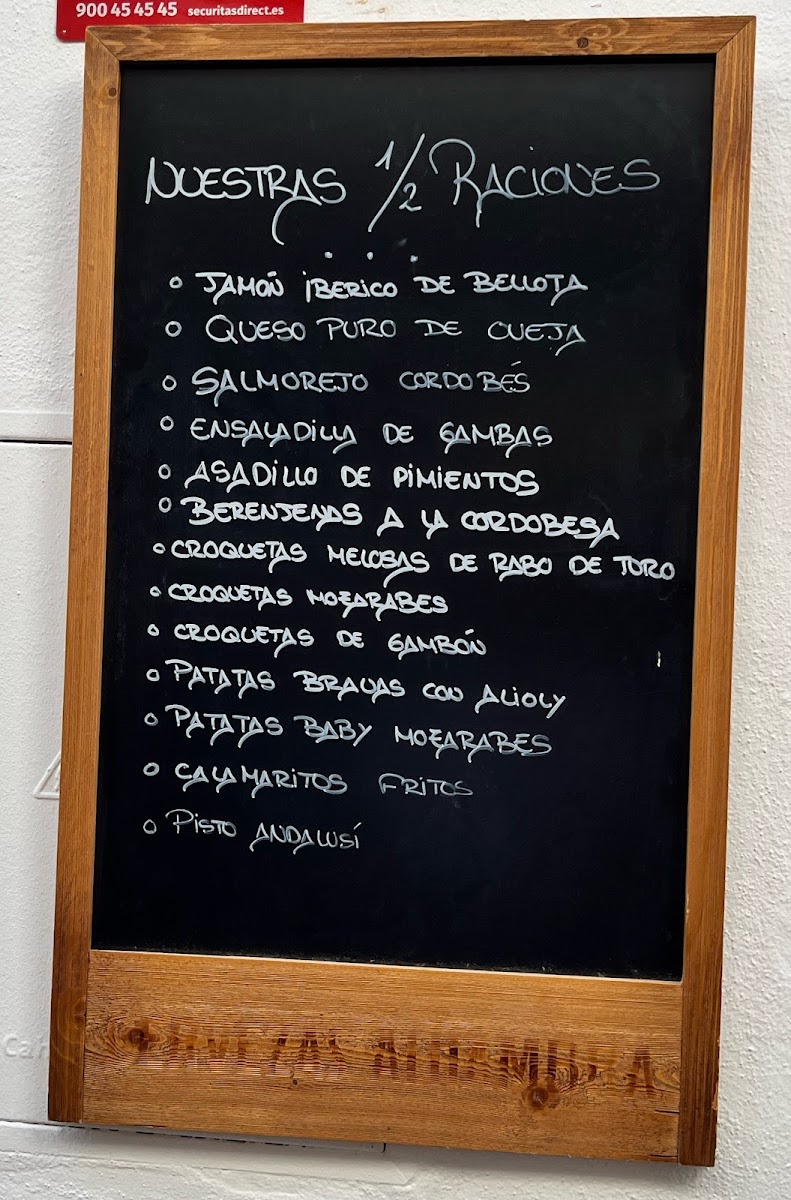 900 45 45 45 securitasdirect.es
NUESTRAS 1/2 RACIONES
JAMÓN IBERICO DE BELLOTA
QUESO PURO DE OVEJA
SALMOREJO CORDOBÉS
ENSALADILLA DE GAMBAS
ASADILLO DE PIMIENTOS
BERENJENAS A LA CORDOBESA
CROQUETAS MELOSAS DE RABO DE TORO
CROQUETAS MOZARABES
CROQUETAS DE GAMBÓN
PATATAS BRAVAS CON ALIOLY
PATATAS BABY MOZARABES
CALAMARITOS FRITOS
PISTO ANDALUSÍ
CERVEZAS ALHAMBRA